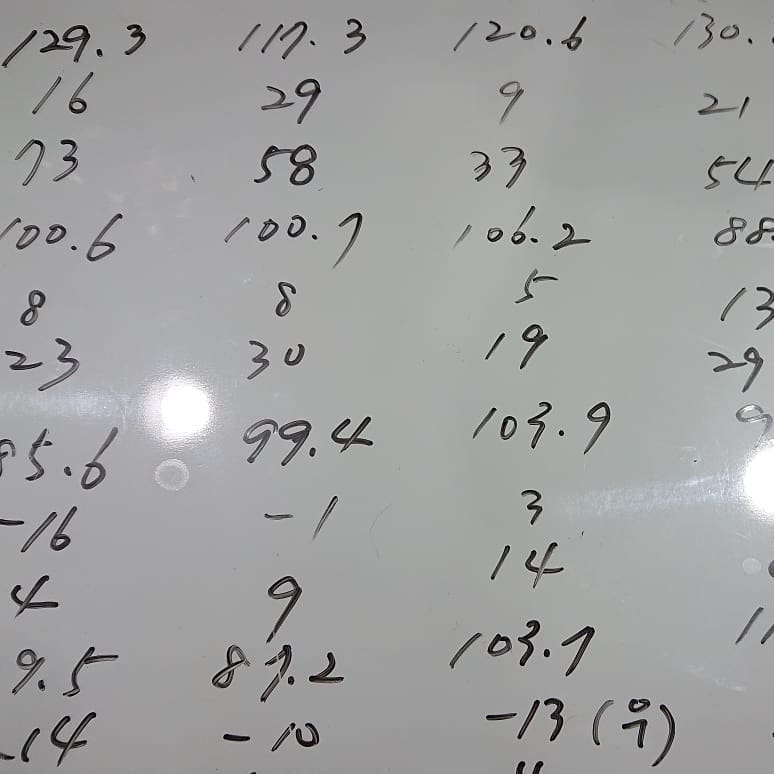 129.3 117.3 120.6 130.
16 29 9 21
73 58 33 54
100.6 100.7 106.2 88
8 8 5 13
23 30 19 29
85.6 99.4 103.9 9
-16 -1 3
4 9 14
9.5 87.2 103.7 11
-14 -10 -13 (우)